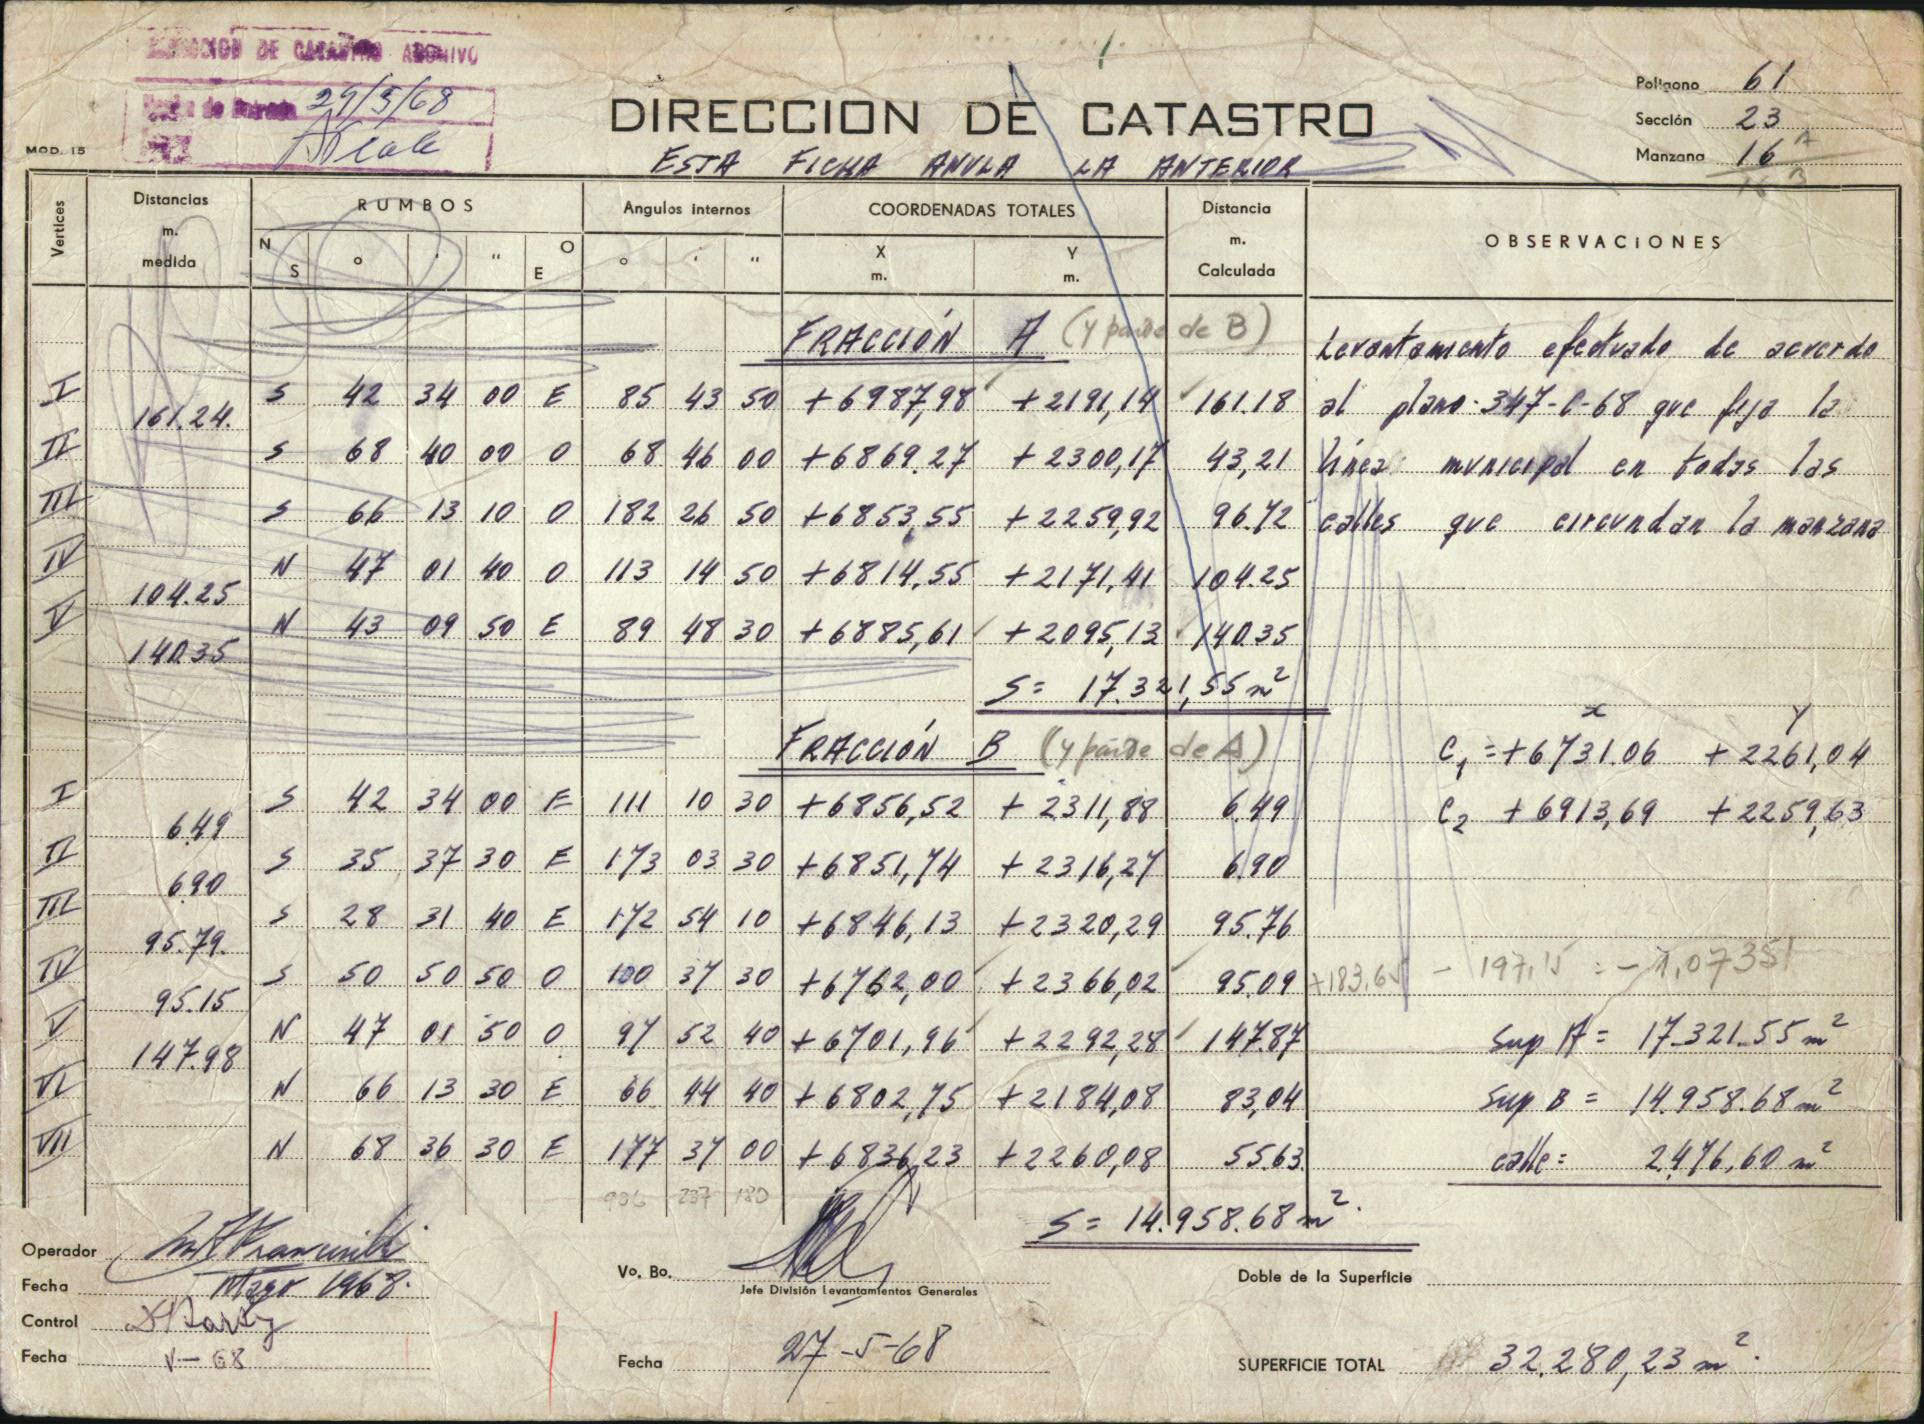 DIRECCION DE CATASTRO ARCHIVO
Fecha de Entrada 29/5/68
DIRECCION DE CATASTRO
ESTA FICHA ANULA LA ANTERIOR
MOD. 15
Polígono 61
Sección 23
Manzana 16 A
16 B
Vertices
Distancias m. medida
RUMBOS
N S ° ' " O E
Angulos internos
° ' "
COORDENADAS TOTALES
X m. Y m.
Distancia m. Calculada
OBSERVACIONES
FRACCIÓN A (y parte de B)
I S 42 34 00 E 85 43 50 +6987,98 +2191,14 161.18
161.24.
II S 68 40 00 O 68 46 00 +6869.27 +2300,17 43,21
III S 66 13 10 O 182 26 50 +6853,55 +2259,92 96.72
IV N 47 01 40 O 113 14 50 +6814,55 +2171,41 104.25
104.25
V N 43 09 50 E 89 48 30 +6885,61 +2095,13 140.35
140.35
S= 17.321,55 m²
Levantamiento efectuado de acuerdo
al plano 347-C-68 que fija la
línea municipal en todas las
calles que circundan la manzana
FRACCIÓN B (y parte de A)
I S 42 34 00 E 111 10 30 +6856,52 +2311,88 6.49
6.49
II S 35 37 30 E 173 03 30 +6851,74 +2316,27 6.90
6.90
III S 28 31 40 E 172 54 10 +6846,13 +2320,29 95.76
95.79.
IV S 50 50 50 O 100 37 30 +6762,00 +2366,02 95.09
95.15
V N 47 01 50 O 97 52 40 +6701,96 +2292,28 147.87
147.98
VI N 66 13 30 E 66 44 40 +6802,75 +2184,08 83,04
VII N 68 36 30 E 177 37 00 +6836,23 +2260,08 55.63
936 237 180
S= 14.958.68 m².
x y
C1 =+6731.06 +2261,04
C2 +6913,69 +2259,63
+183.65 - 197,15 = -1,07351
Sup A = 17.321.55 m²
Sup B = 14.958.68 m²
calle = 2.476,60 m²
Operador
Fecha Mayo 1968.
Control
Fecha V-68
Vo. Bo.
Jefe División Levantamientos Generales
Fecha 27-5-68
Doble de la Superficie
SUPERFICIE TOTAL 32.280,23 m².